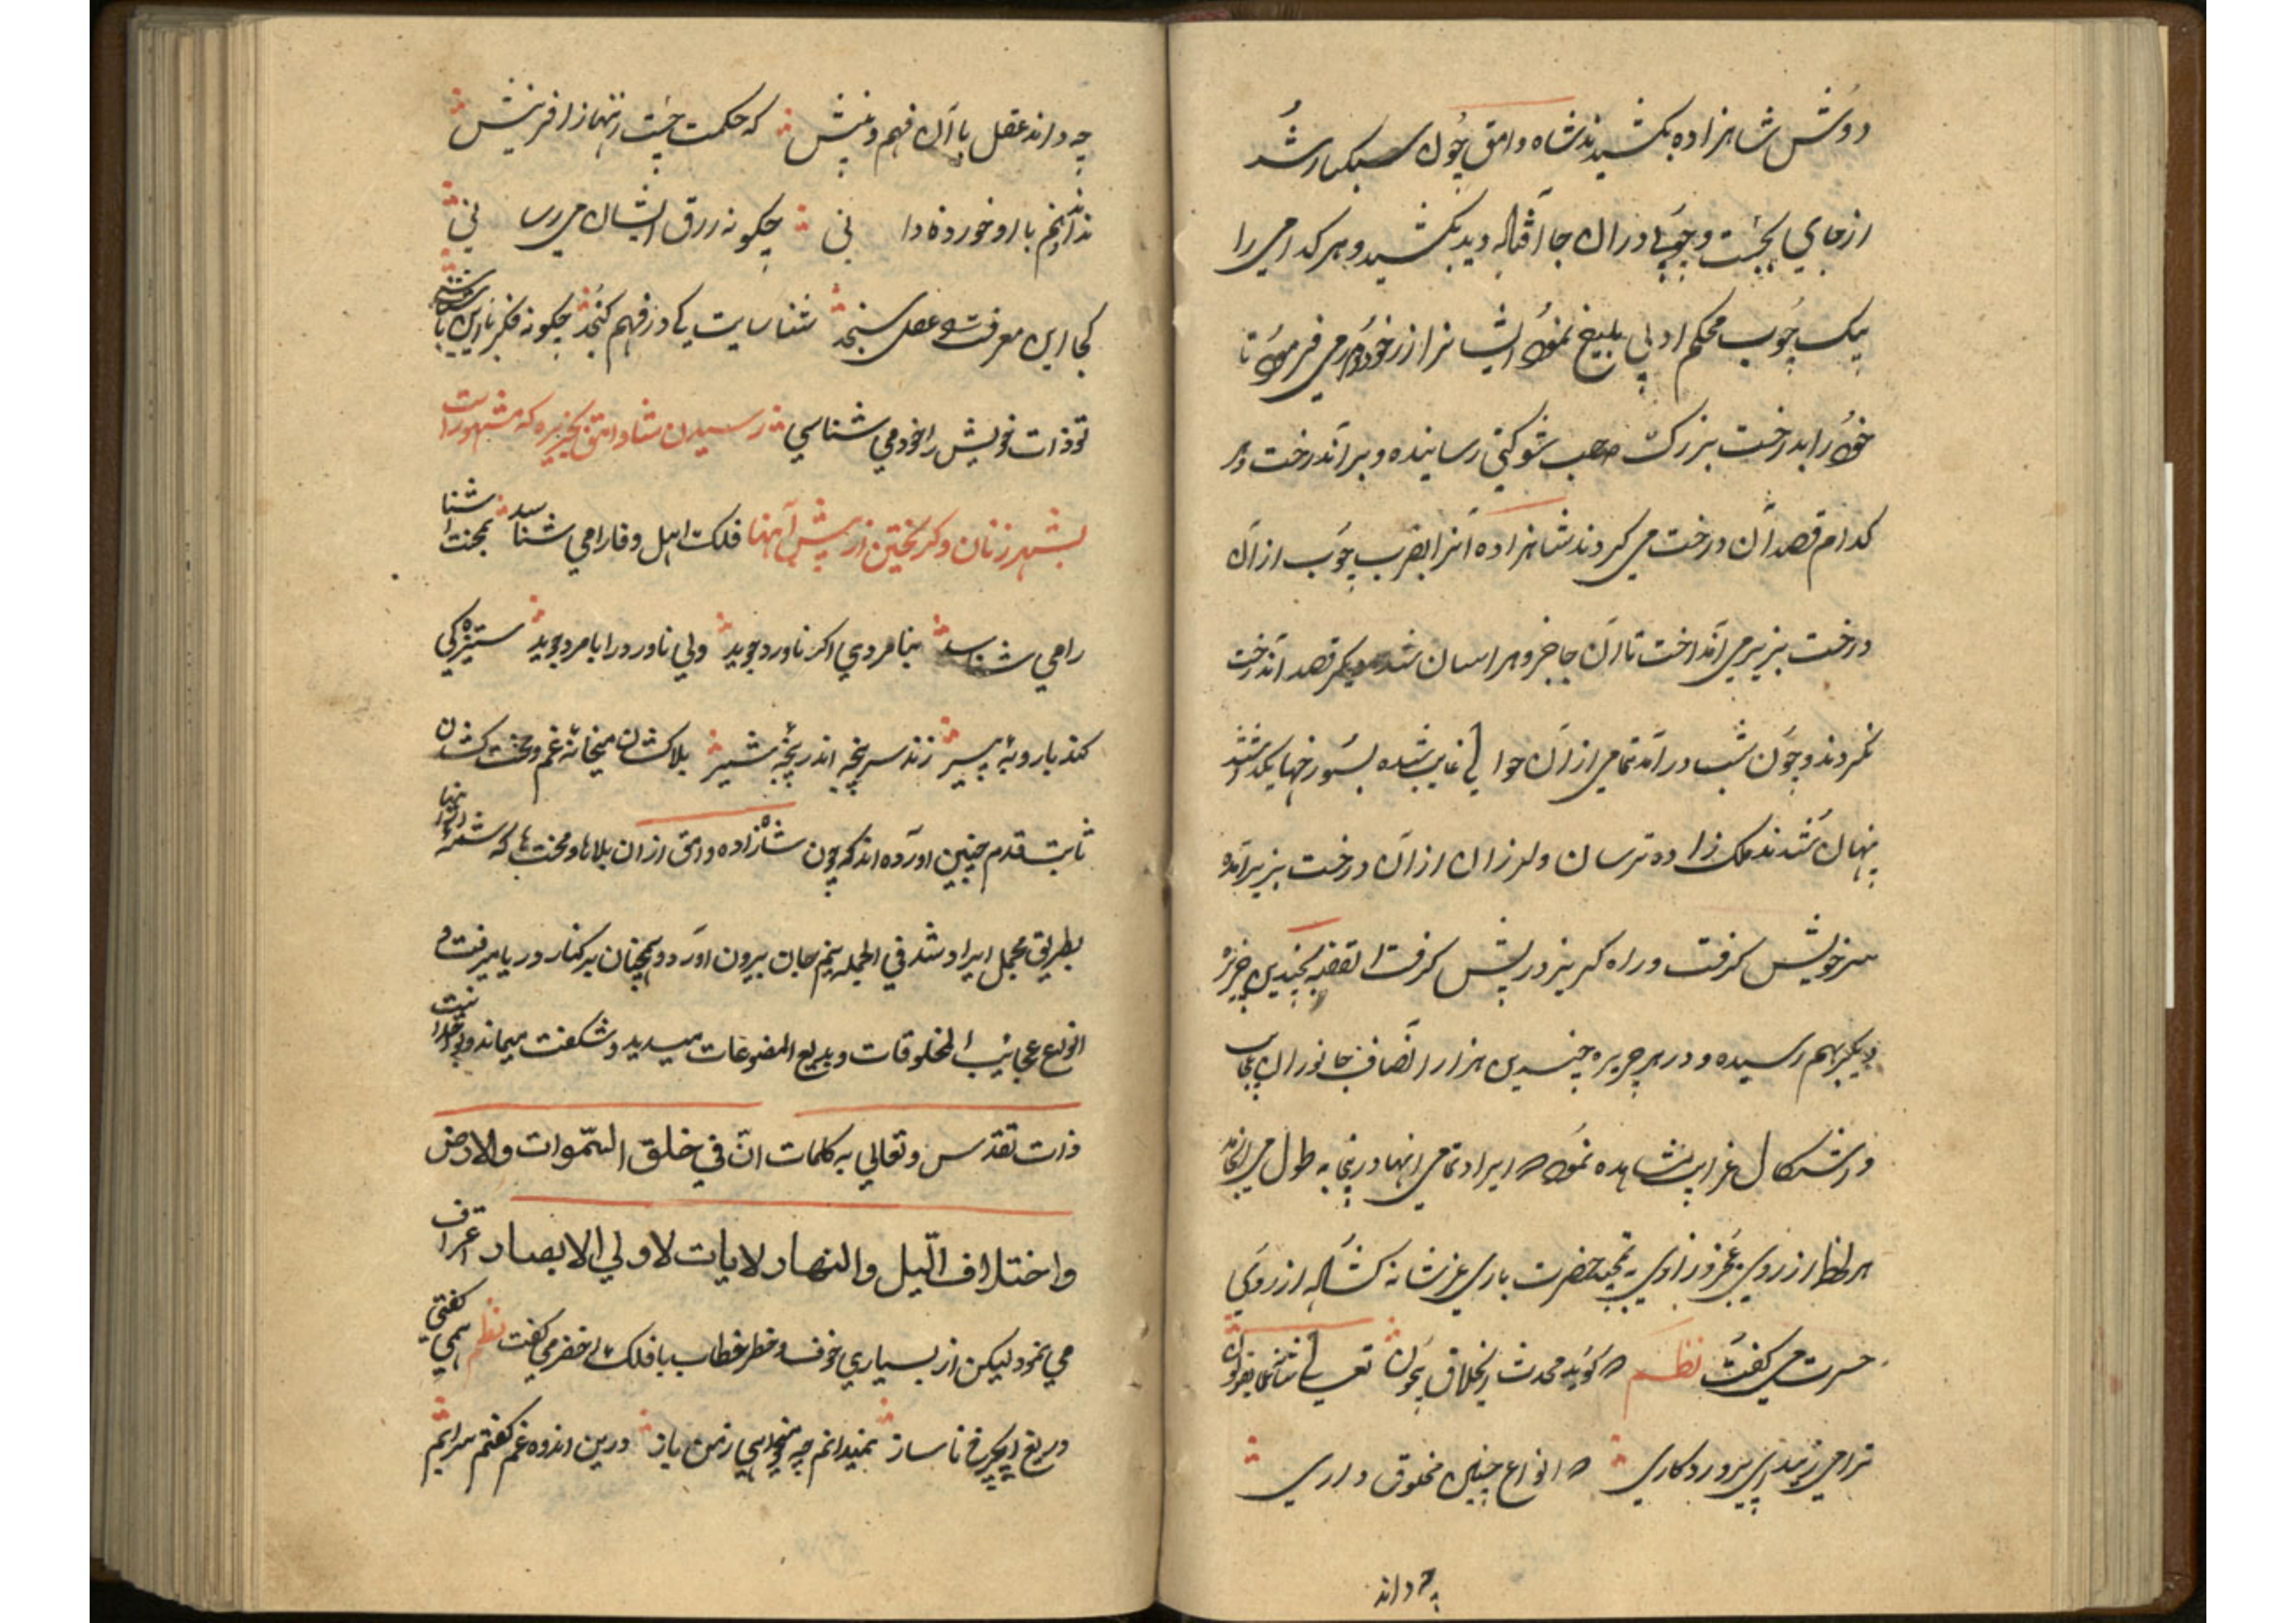 دوش شاهزاده بکشیدند شاه وامق چون سبکبار شد
از جای بجست و چوبها در آن جا افتاده دید بکشید و هر کدامی را
بیک چوب محکم ادبی بلیغ نمود ایشانرا از زخود دور می فرمود تا
خود را بدرخت بزرگ صعب شوکتی رسانیده و بر آندرخت هر
کدام قصد آن درخت می کردند شاهزاده آنرا بضرب چوب از آن
درخت بزیر می انداخت تا آن جا و هراسان شد دیگر قصد آندرخت
نکردند و چون شب در آمد تمامی از آن حوالی غایب شده بسوراخها
پنهان شدند ملک زاده ترسان و لرزان از آن درخت بزیر آمده
سر خویش گرفت و راه گریز در پیش گرفت القصه بچندین جزیره
دیگر بهم رسیده و در هر جزیره چندین هزار اصناف جانوران عجایب
و اشکال غرایب مشاهده نمود که ایراد تمامی اینها درینجا به طول می انجامد
هر لحظه از روی عجز و زاری به تمجید حضرت باری عز شانه گشاده از روی
حسرت می گفت نظم که گوید محدث از خلاق بیچون تعالی شانه عما یقولون
ترا می زیبد این پروردگاری که انواع چنین مخلوق داری
چه داند
چه داند عقل با آن فهم و بینش که حکمت چیست زینها ز آفرینش
ندانم با او خورده دانی چگونه رزق ایشان می رسانی
کجا این معرفت عقل سنجد شناساییت کی در فهم گنجد چگونه فکر ما این
تو ذات خویش را خود می شناسی رسیدن شاه وامق بجزیره که مشهور است
بشهر زنان و گریختن از پیش آنها فلک اهل وفا را می شناسد بمحنت آشنا
را می شناسد بنامردی اگر ناورد جوید ولی ناورد را با مرد جوید ستیزگی
کند با روبه پیر زند سر پنجه اندر پنجه شیر بلاکشان میخانه غم و محنت کشان
ثابت قدم چنین آورده اند که چون شاهزاده وامق از آن بلاها و محنت ها که شمه از آنها
بطریق مجمل ایراد شد فی الجمله نیم جان بیرون آورد و همچنان بر کنار دریا میرفت و
انواع عجایب المخلوقات و بدیع المصنوعات میدید و شگفت میماند و بوحدانیت
ذات تقدس و تعالی به کلمات انّ فی خلق السّموات والارض
واختلاف اللّیل والنهار لایات لاولی الابصار اعتراف
می نمود لیکن از بسیاری خوف و خطر خطاب با فلک اخضر می گفت نظم همی گفتی
دریغ ای چرخ ناساز نمیدانم چه میخواهی ز من باز درین اندوه غم گفتم سرایم